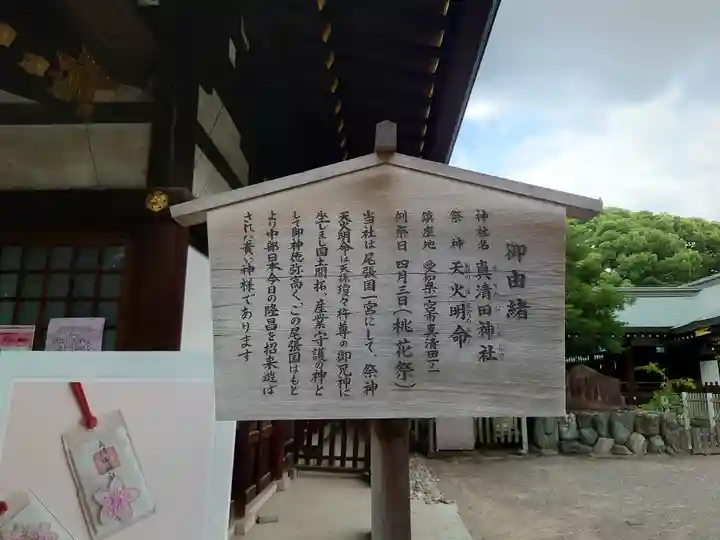 御由緒
神社名 真清田神社
祭神 天火明命
鎮座地 愛知県一宮市真清田一ノ一
例祭日 四月三日（桃花祭）
当社は尾張国一宮にして、祭神
天火明命は天孫瓊々杵尊の御兄神に
坐しまし国土開拓、産業守護の神と
して御神徳弥高く、この尾張国はもと
より中部日本今日の隆昌を招来遊ば
された貴い神様であります